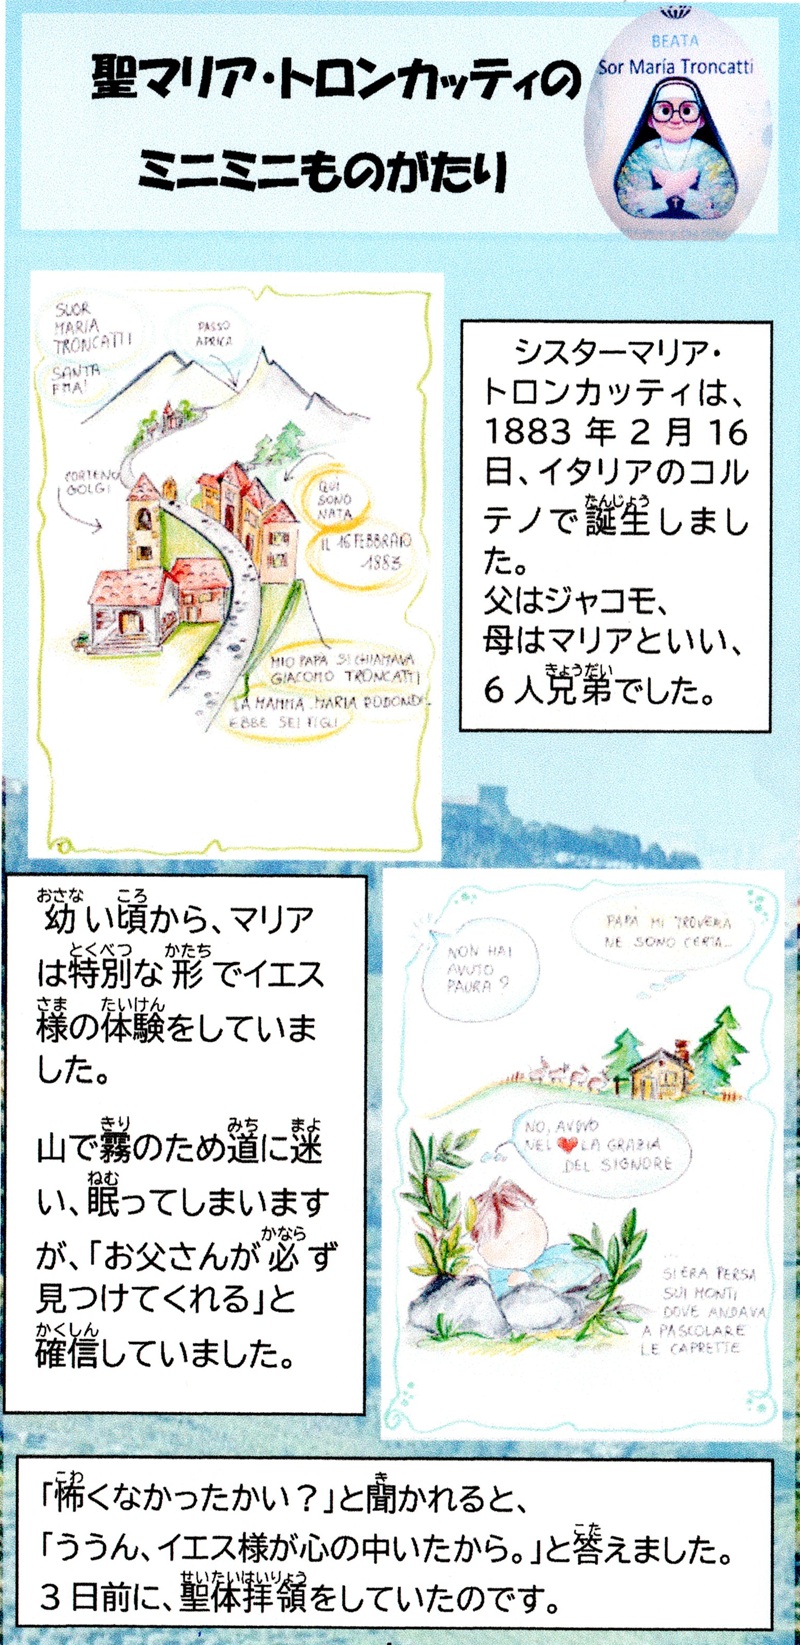 聖マリア・トロンカッティの
ミニミニものがたり
BEATA
Sor María Troncatti
SUOR
MARIA
TRONCATTI
SANTA
FMA!
PASSO
APRICA
CORTENO
GOLGI
QUI
SONO
NATA
IL 16 FEBBRAIO
1883
MIO PAPÀ SI CHIAMAVA
GIACOMO TRONCATTI
LA MAMMA MARIA RODONDI
EBBE SEI FIGLI
シスターマリア・
トロンカッティは、
1883 年 2 月 16
日、イタリアのコル
テノで誕生しまし
た。
父はジャコモ、
母はマリアといい、
6 人兄弟でした。
幼い頃から、マリア
は特別な形でイエス
様の体験をしていま
した。
山で霧のため道に迷
い、眠ってしまいます
が、「お父さんが必ず
見つけてくれる」と
確信していました。
NON HAI
AVUTO
PAURA?
PAPÀ MI TROVERÀ
NE SONO CERTA...
NO, AVEVO
NEL LA GRAZIA
DEL SIGNORE
...
SI ERA PERSA
SUI MONTI
DOVE ANDAVA
A PASCOLARE
LE CAPRETTE
「怖くなかったかい？」と聞かれると、
「ううん、イエス様が心の中いたから。」と答えました。
3 日前に、聖体拝領をしていたのです。